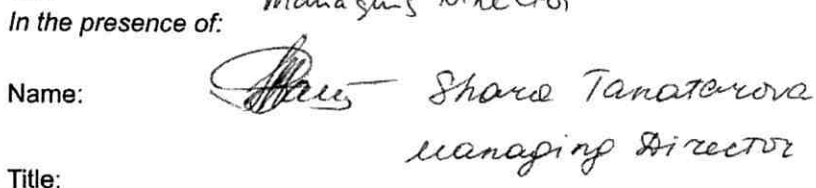 Managing Director
In the presence of:
Name: Shara Tanatarova
Managing Director
Title: